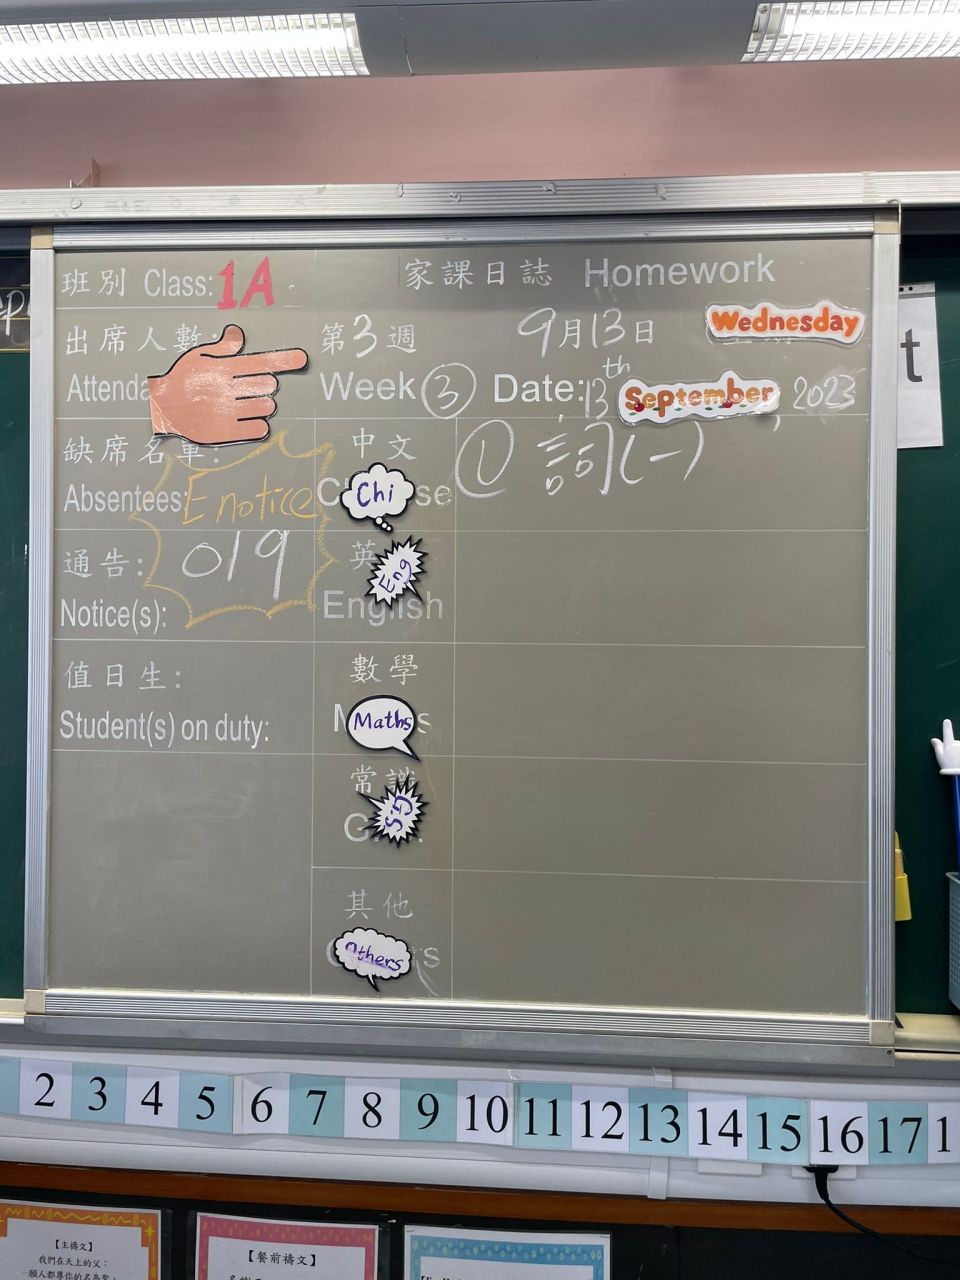 班別 Class: 1A
家課日誌 Homework
出席人數
Attenda
第3週
9月13日
Wednesday
Week ③
Date: 13th September, 2023
缺席名單:
Absentees:
E notice
019
通告:
Notice(s):
值日生:
Student(s) on duty:
中文
Chi
① 詞(一)
英
Eng
English
數學
Maths
常識
G.S
其他
Others
2 3 4 5 6 7 8 9 10 11 12 13 14 15 16 17 1
t
【主禱文】
我們在天上的父：
願人都尊你的名為聖。
【餐前禱文】